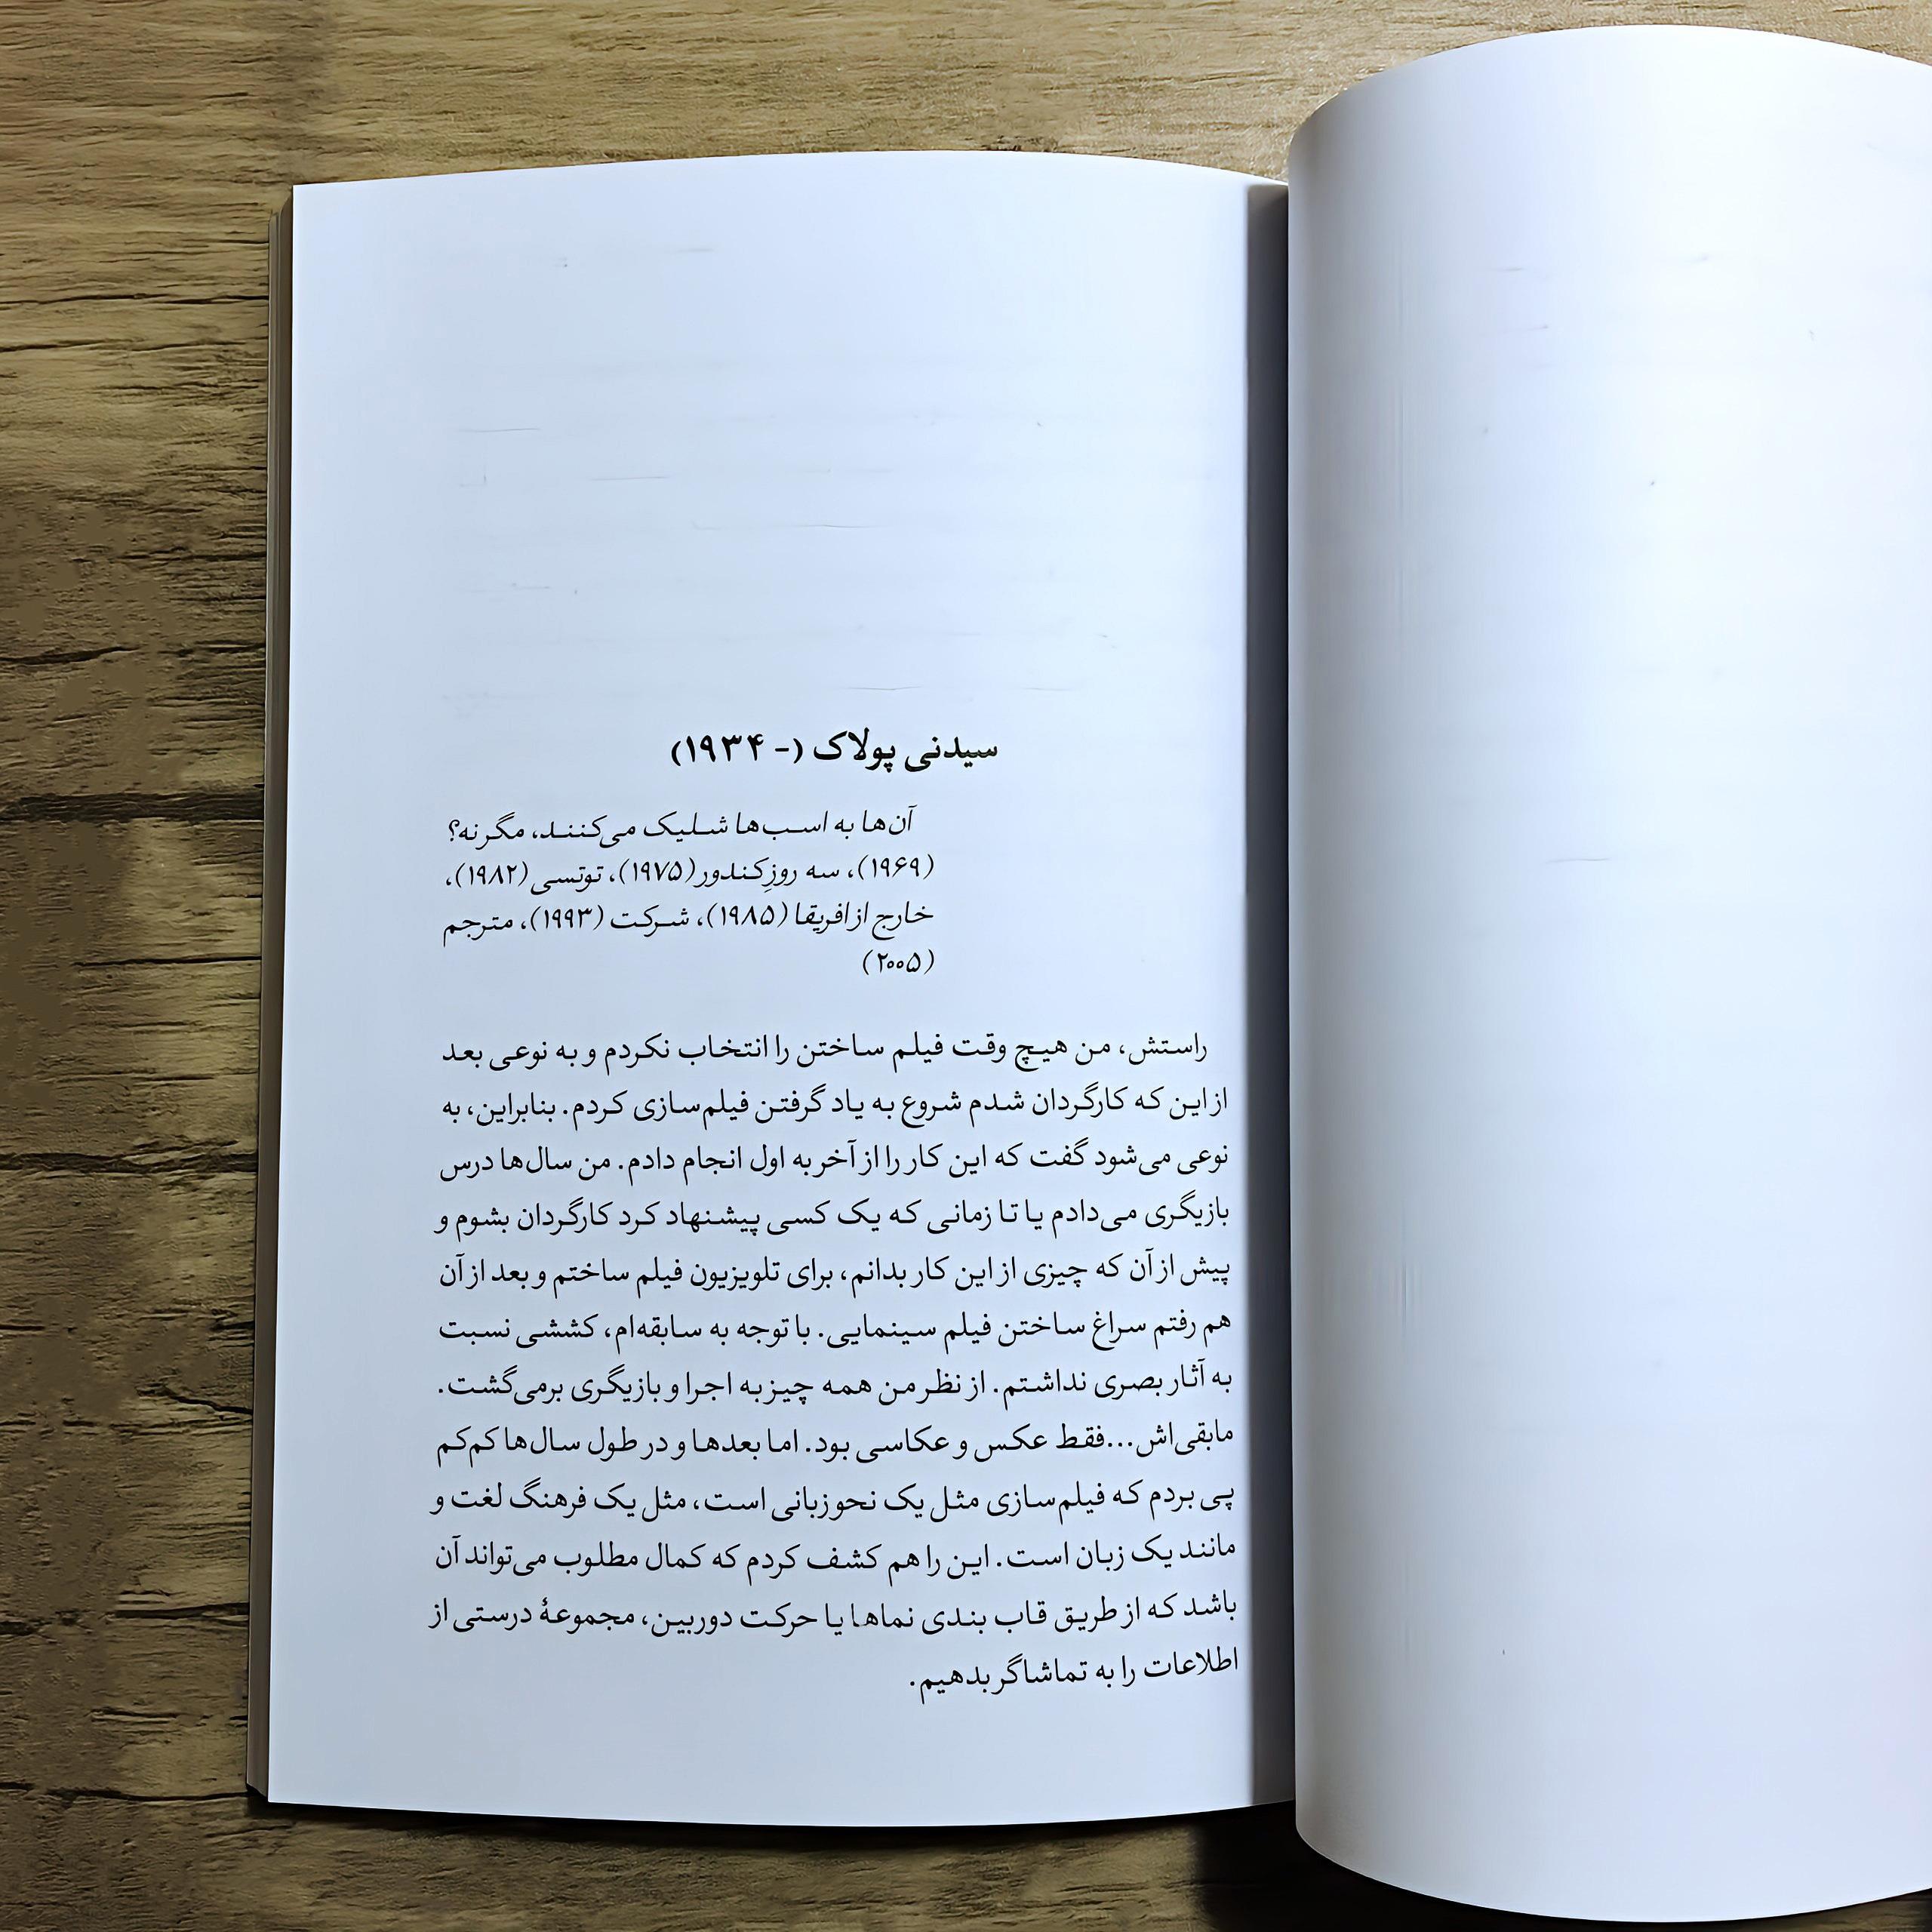 سیدنی پولاک (- ۱۹۳۴)
آن‌ها به اسب‌ها شلیک می‌کنند، مگر نه؟
(۱۹۶۹)، سه روزِ کندور (۱۹۷۵)، توتسی (۱۹۸۲)،
خارج از افریقا (۱۹۸۵)، شرکت (۱۹۹۳)، مترجم
(۲۰۰۵)
راستش، من هیچ وقت فیلم ساختن را انتخاب نکردم و به نوعی بعد
از این که کارگردان شدم شروع به یاد گرفتن فیلم‌سازی کردم. بنابراین، به
نوعی می‌شود گفت که این کار را از آخر به اول انجام دادم. من سال‌ها درس
بازیگری می‌دادم یا تا زمانی که یک کسی پیشنهاد کرد کارگردان بشوم و
پیش از آن که چیزی از این کار بدانم، برای تلویزیون فیلم ساختم و بعد از آن
هم رفتم سراغ ساختن فیلم سینمایی. با توجه به سابقه‌ام، کششی نسبت
به آثار بصری نداشتم. از نظر من همه چیز به اجرا و بازیگری برمی‌گشت.
مابقی‌اش...فقط عکس و عکاسی بود. اما بعدها و در طول سال‌ها کم‌کم
پی بردم که فیلم‌سازی مثل یک نحو زبانی است، مثل یک فرهنگ لغت و
مانند یک زبان است. این را هم کشف کردم که کمال مطلوب می‌تواند آن
باشد که از طریق قاب بندی نماها یا حرکت دوربین، مجموعهٔ درستی از
اطلاعات را به تماشاگر بدهیم.